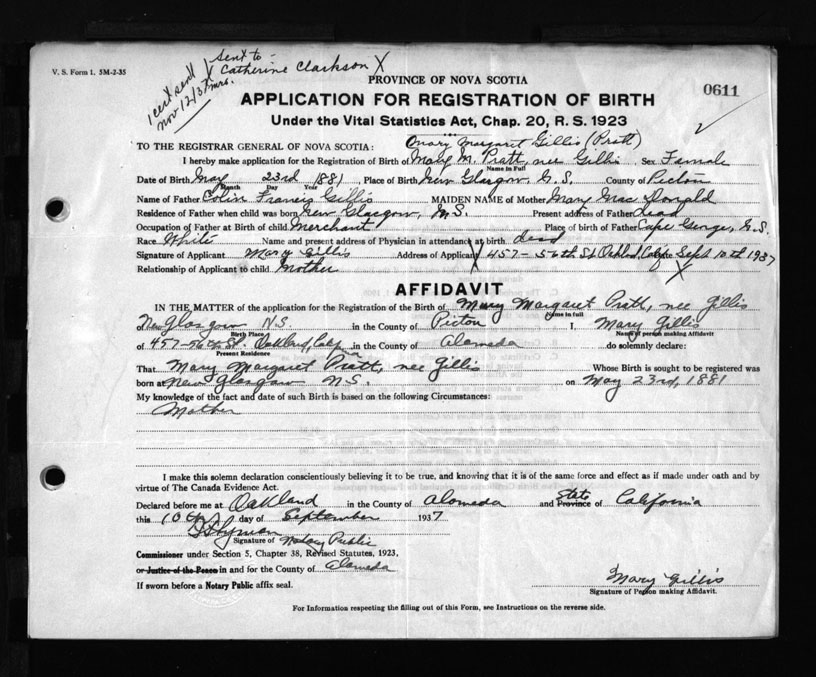 V. S. Form 1. 5M-2-35
sent to -
Catherine Clarkson X
1 cert sent
Nov 12/37
PROVINCE OF NOVA SCOTIA
0611
APPLICATION FOR REGISTRATION OF BIRTH
Under the Vital Statistics Act, Chap. 20, R. S. 1923
Mary Margaret Gillis (Pratt)
TO THE REGISTRAR GENERAL OF NOVA SCOTIA:
I hereby make application for the Registration of Birth of Mary M. Pratt, nee Gillis Sex Female
Name in Full
Date of Birth May 23rd 1881, Place of Birth New Glasgow, N.S. County of Picton
Month Day Year
Name of Father Colin Francis Gillis MAIDEN NAME of Mother Mary Mac Donald
Residence of Father when child was born New Glasgow, N.S. Present address of Father dead
Occupation of Father at Birth of child Merchant Place of birth of Father Cape George, N.S.
Race White Name and present address of Physician in attendance at birth dead
Signature of Applicant Mary Gillis Address of Applicant X 457-56th St Oakland, Calif Date Sept 10th 1937
Relationship of Applicant to child Mother X
AFFIDAVIT
IN THE MATTER of the application for the Registration of the Birth of Mary Margaret Pratt, nee Gillis
Name in full
of New Glasgow N.S. in the County of Picton I, Mary Gillis
Birth Place Name of person making Affidavit
of 457-56th St. Oakland, California in the County of Alameda do solemnly declare:
Present Residence
That Mary Margaret Pratt, nee Gillis Whose Birth is sought to be registered was
born at New Glasgow N.S. on May 23rd, 1881
My knowledge of the fact and date of such Birth is based on the following Circumstances:
Mother
I make this solemn declaration conscientiously believing it to be true, and knowing that it is of the same force and effect as if made under oath and by
virtue of The Canada Evidence Act.
Declared before me at Oakland in the County of Alameda and State Province of California
this 10th day of September 1937
Signature of Notary Public
Commissioner under Section 5, Chapter 38, Revised Statutes, 1923,
or Justice of the Peace in and for the County of Alameda
If sworn before a Notary Public affix seal.
Mary Gillis
Signature of Person making Affidavit.
For Information respecting the filling out of this Form, see Instructions on the reverse side.